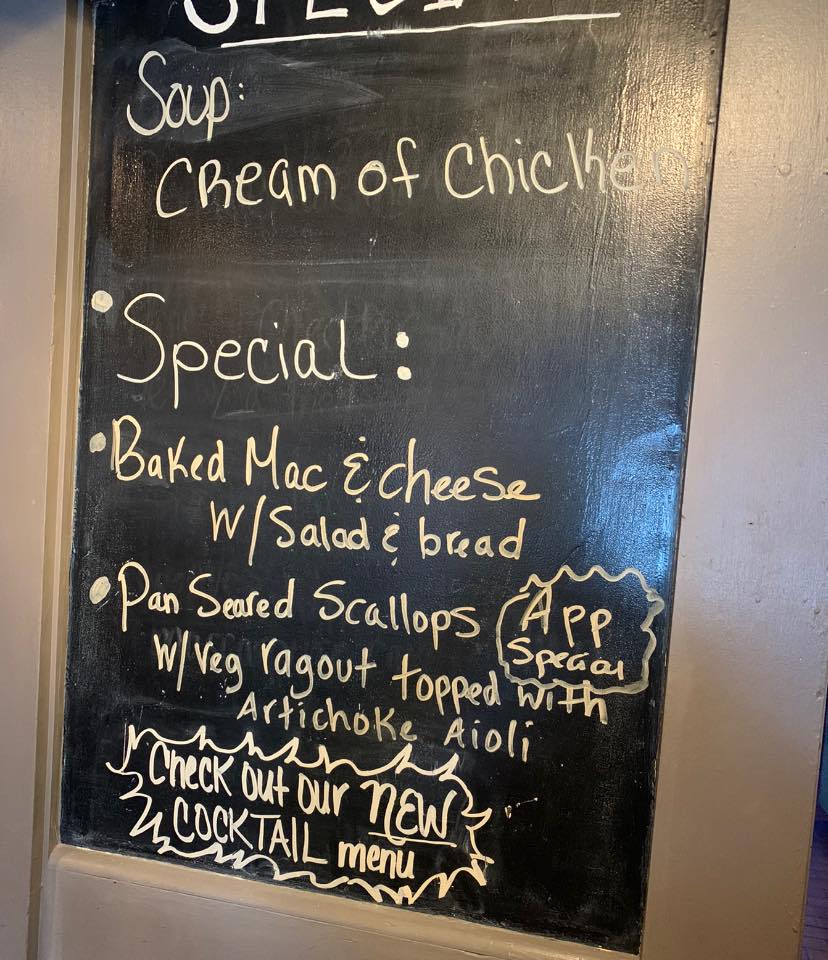 Soup:
Cream of Chicken
Special:
Baked Mac & cheese
W/Salad & bread
Pan Seared Scallops
App
Special
w/veg ragout topped with
Artichoke Aioli
Check out our NEW
COCKTAIL menu